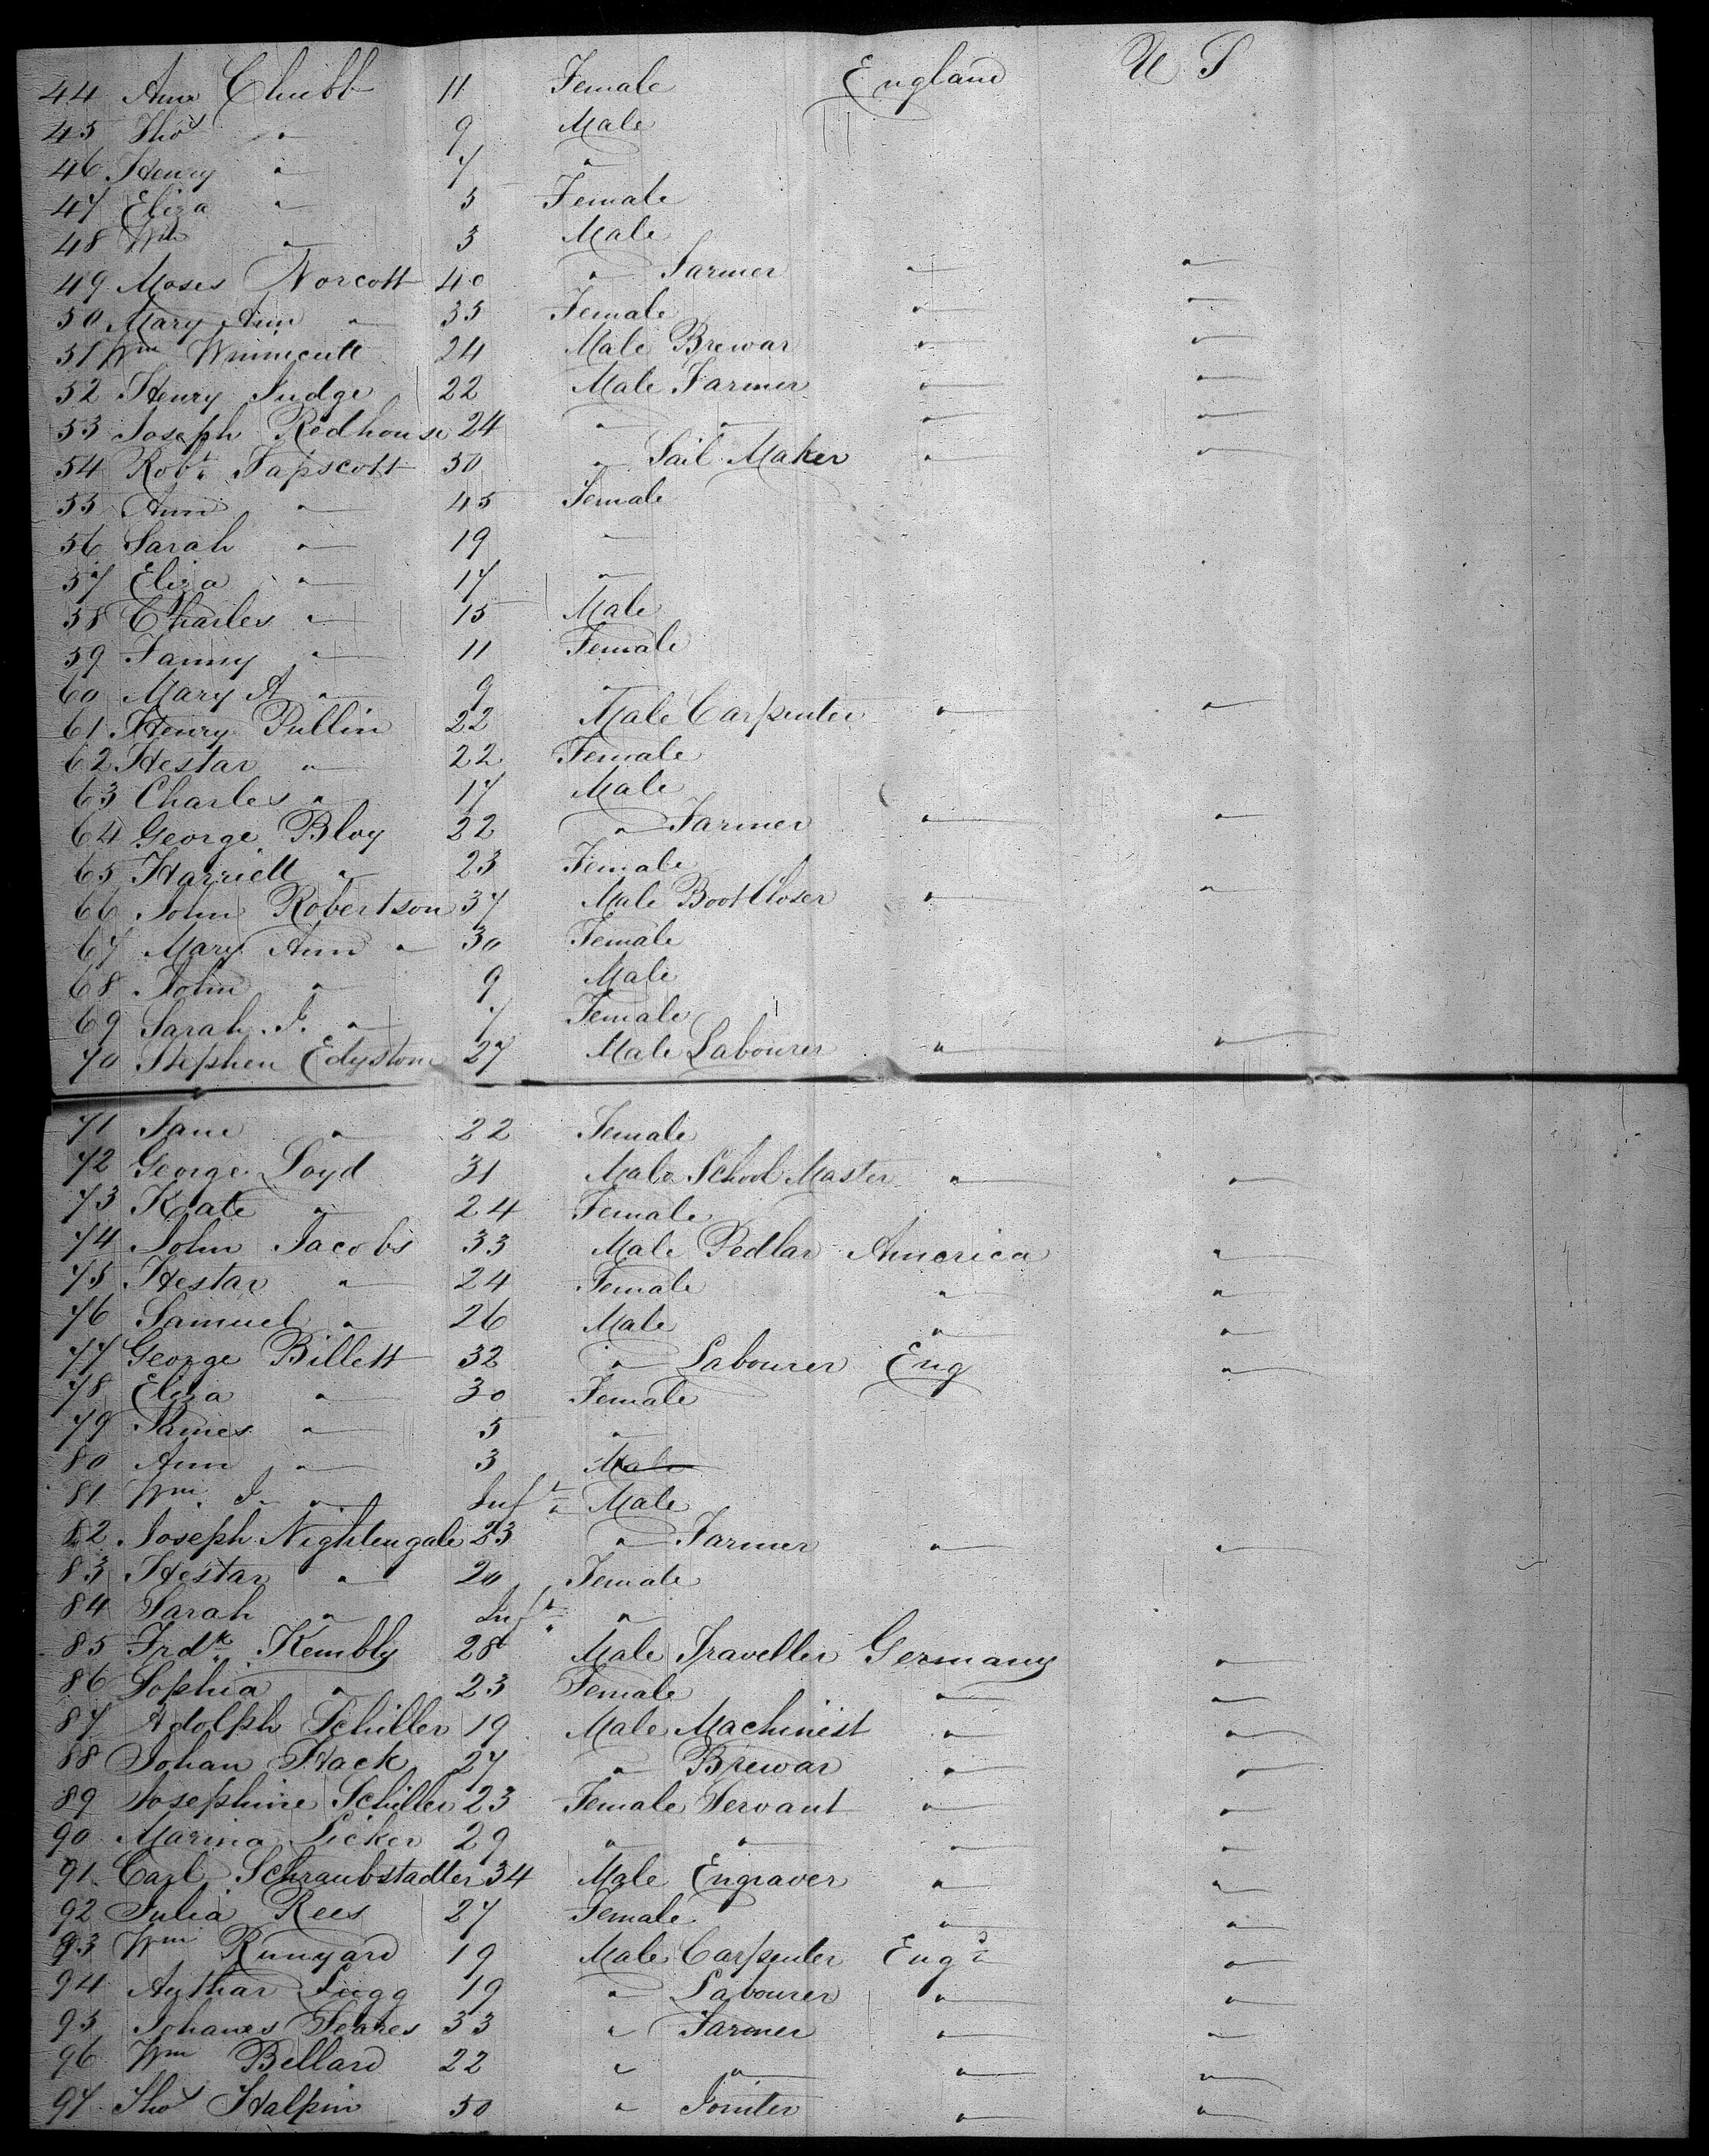 44 Ann Chubb 11 Female England U S
45 Thos " 9 Male
46 Henry " 7 "
47 Eliza " 5 Female
48 Wm " 3 Male
49 Moses Norcott 40 " Farmer " "
50 Mary Ann " 35 Female " "
51 Wm Winnicutt 24 Male Brewar " "
52 Henry Judge 22 Male Farmer " "
53 Joseph Redhouse 24 " " " "
54 Robt. Tapscott 50 " Sail Maker " "
55 Ann " 45 Female
56 Sarah " 19 "
57 Eliza " 17 "
58 Charles " 15 Male
59 Fanny " 11 Female
60 Mary A " 9 "
61 Henry Pullin 22 Male Carpenter " "
62 Hestar " 22 Female
63 Charles " 17 Male
64 George Bloy 22 " Farmer " "
65 Harriett " 23 Female
66 John Robertson 37 Male Boot Closer " "
67 Mary Ann " 30 Female
68 John " 9 Male
69 Sarah J. " 7 Female
70 Stephen Edystone 27 Male Labourer " "
71 Jane " 22 Female
72 George Loyd 31 Male School Master " "
73 Kate " 24 Female
74 John Jacobs 33 Male Pedlar America "
75 Hestar " 24 Female " "
76 Samuel " 26 Male " "
77 George Billett 32 " Labourer Eng "
78 Eliza " 30 Female
79 James " 5 "
80 Ann " 3 Male
81 Wm. J. " Inft " Male
82 Joseph Nightengale 23 " Farmer " "
83 Hestar " 20 Female
84 Sarah " Inft "
85 Frdk. Kembly 28 Male Traveller Germany "
86 Sophia " 23 Female " "
87 Adolph Schiller 19 Male Machinist " "
88 Johan Hack 27 " Brewar " "
89 Josephine Schiller 23 Female Servant " "
90 Marina Licker 29 " " " "
91 Carl Schraubstadter 34 Male Engraver " "
92 Julia Rees 27 Female " "
93 Wm Runyard 19 Male Carpenter Engd "
94 Arthar Lugg 19 " Labourer " "
95 Johanes 33 " Farmer " "
96 Wm Bellard 22 " " " "
97 Thos Halpin 50 " " "